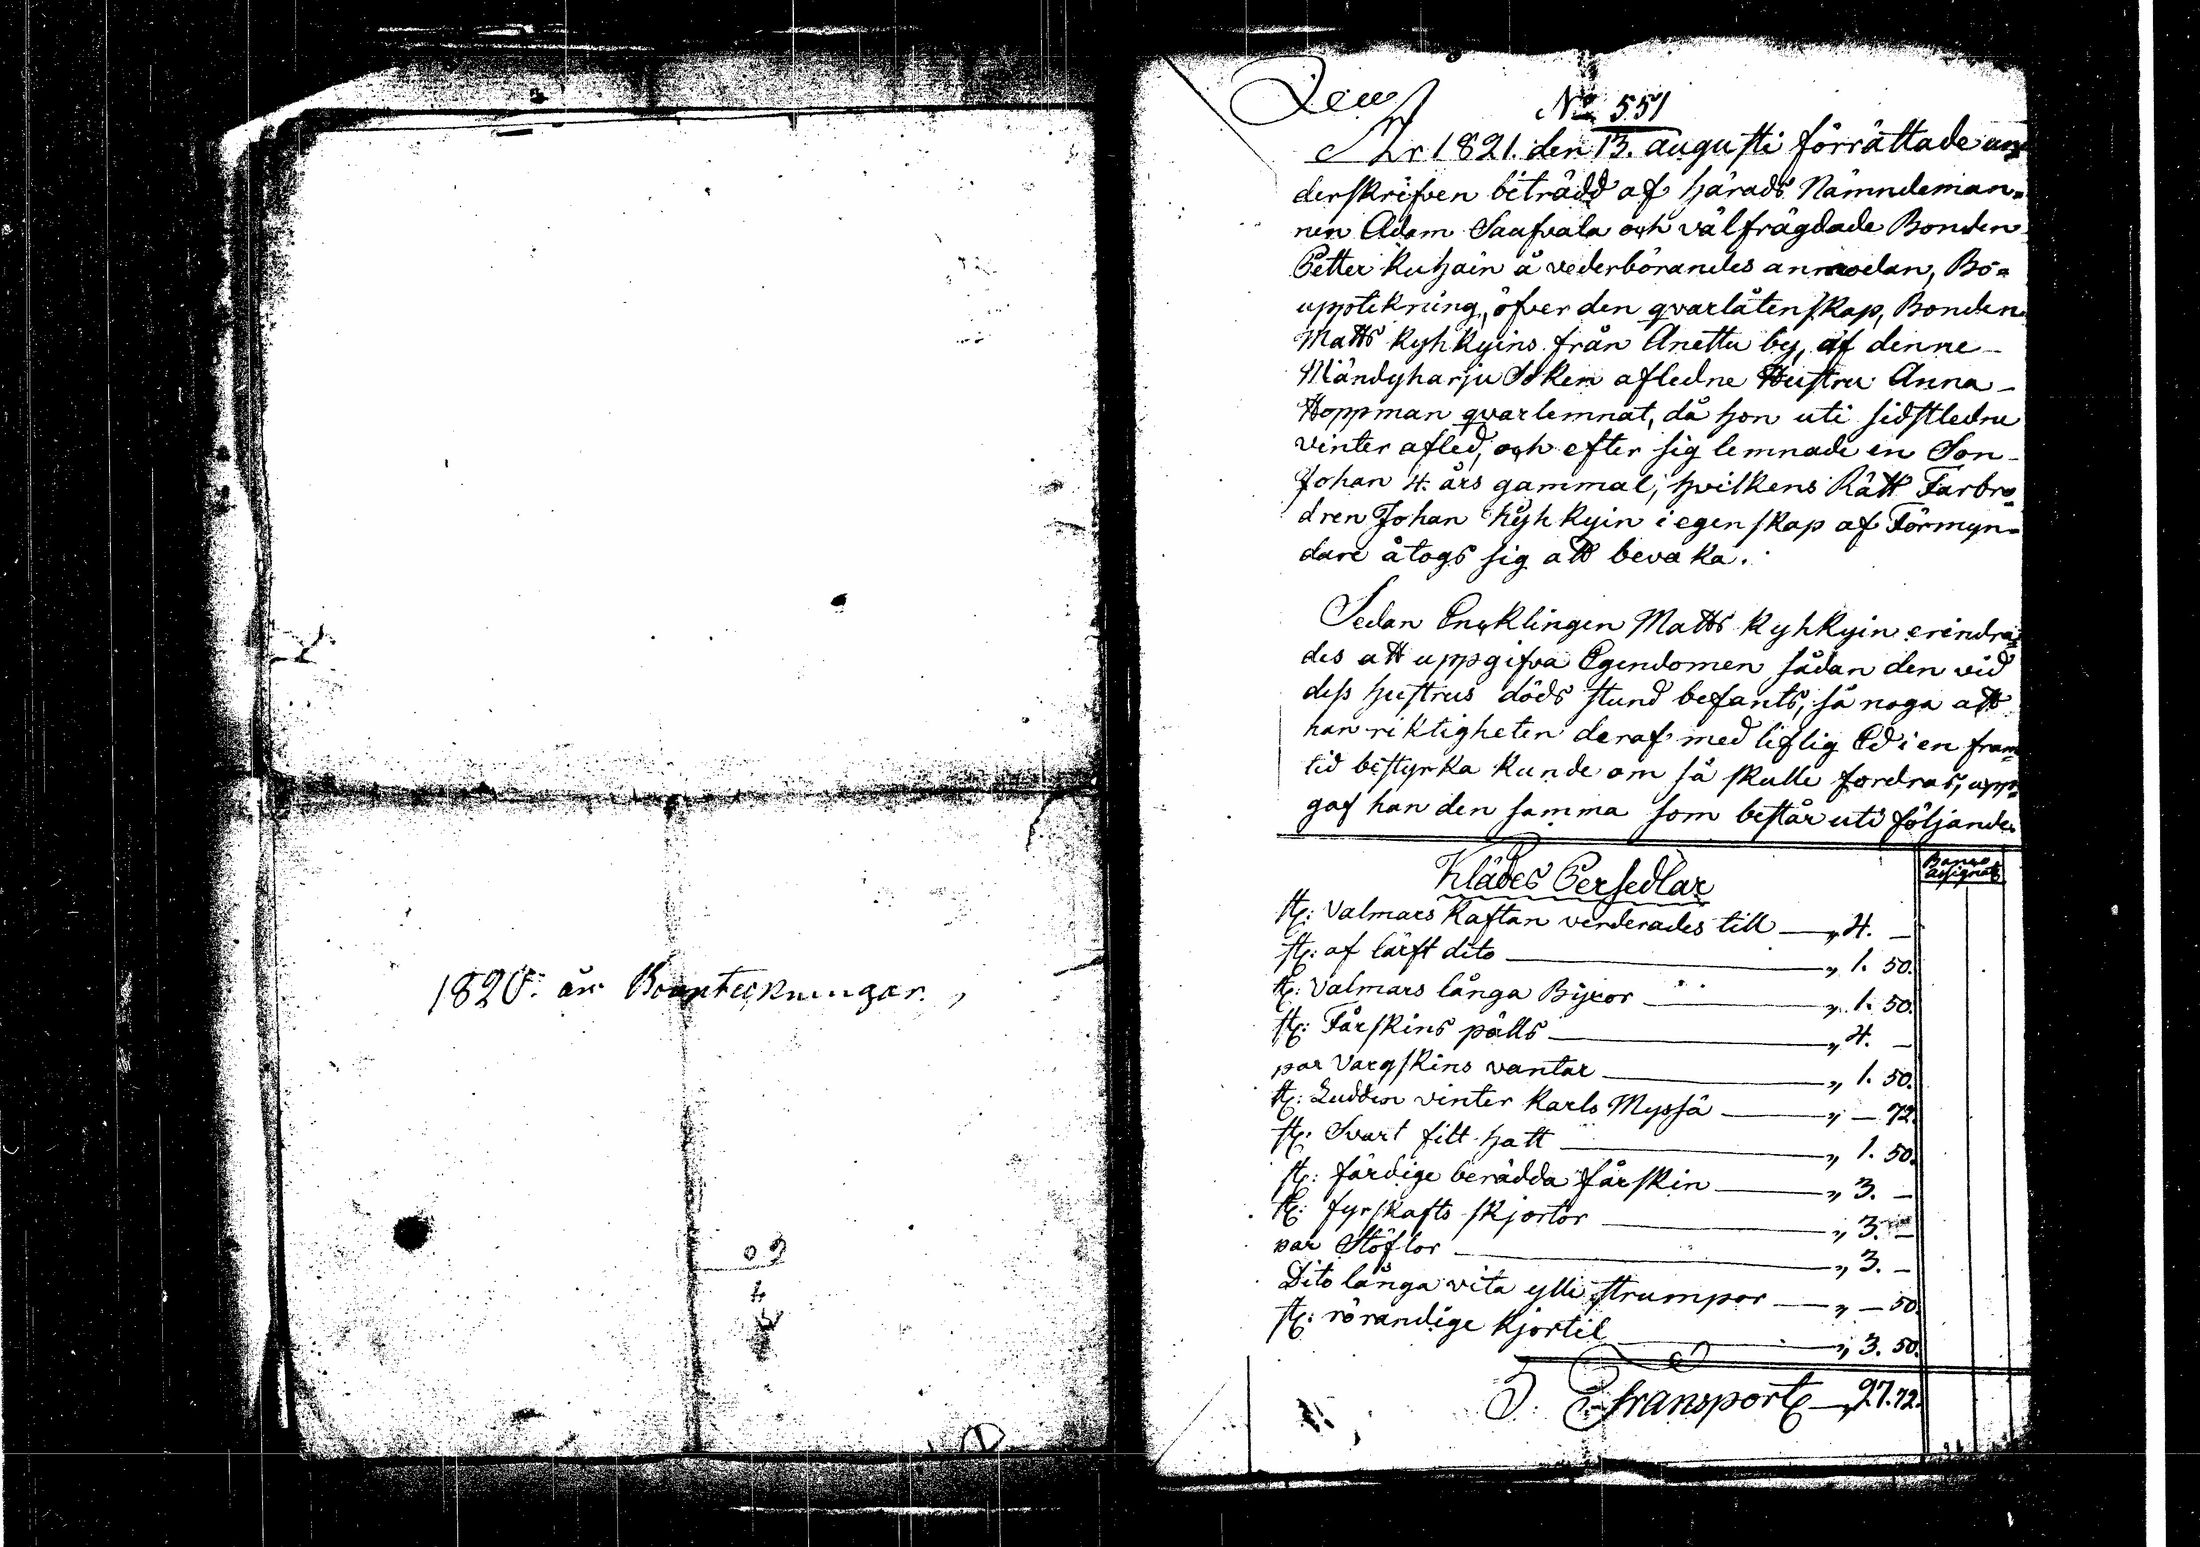 1820. års Bouptekningar.
No 551
År 1821. den 13. augusti förrättade un=
derskrifven biträdd af härads Nämndeman=
nen Adam Saufvala och välfrägdade Bonden
Petter Kuhain å vederbörandes anmodan, Bo=
upptekning, öfver den qvarlåtenskap, Bonden
Matts Kyhkyins från Anettu by, af denne
Mändyharju Soken afledne Hustru Anna
Hoppman qvarlemnat, då hon uti sidstledne
vinter afled, och efter sig lemnade en Son
Johan 4. års gammal, hvilkens Rätt Farbro=
dren Johan Kyhkyin i egenskap af Förmyn=
dare åtogs sig att bevaka.
Sedan Enklingen Matts Kyhkyin erindra=
des att uppgifva Egendomen sådan den vid
dess hustrus döds stund befants, så noga att
han riktigheten deraf med liflig Ed i en fram=
tid bestyrka kunde om så skulle fordras, upp=
gaf han den samma som består uti följande
Klädes Persedlar
Banco assignat:
st: Valmars Kaftan verderades till — " 4. —
st: af lärft dito — " 1. 50.
st: Valmars långa Byxor — " 1. 50.
st: Fårskins pälls — " 4. —
par Vargskins vantar — " 1. 50.
st: Ludden vinter Karls Myssä — " — 72.
st: Svart filt hatt — " 1. 50.
st: färdige berädda fårskin — " 3. —
st: fyrskafts skjortor — " 3. —
par Stöflor — " 3. —
Dito långa vita ylle strumpor — " — 50.
st: rörandige Kjortil — " 3. 50.
Transport — " 27. 72.